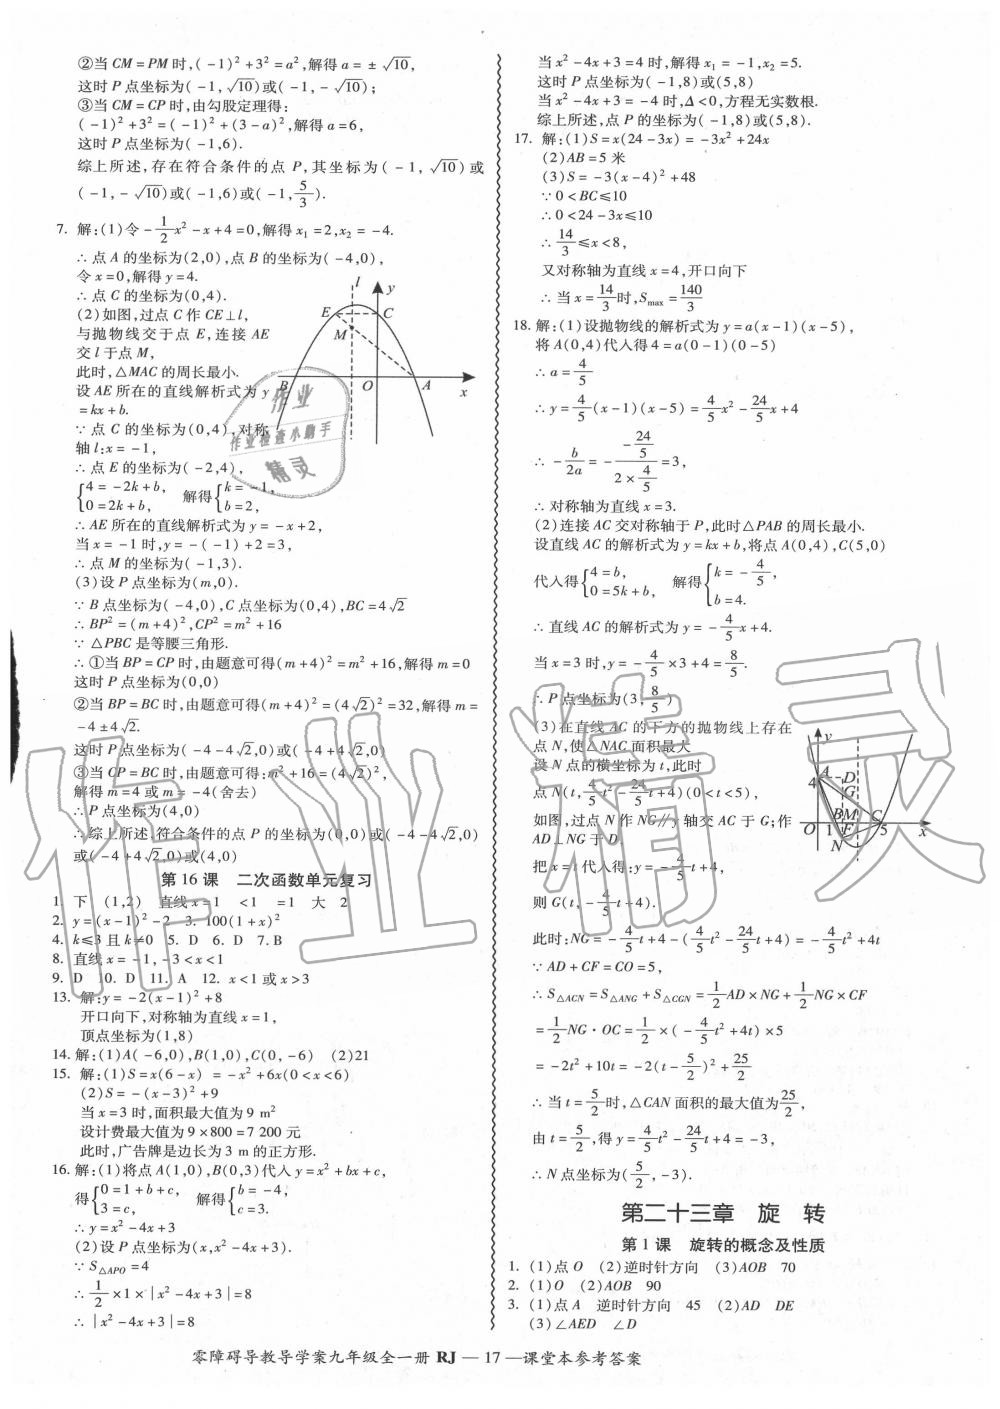 ②当 CM=PM 时,(-1)²+3²=a²,解得 a=±√10,
这时 P 点坐标为(-1,√10)或(-1,-√10);
③当 CM=CP 时,由勾股定理得:
(-1)²+3²=(-1)²+(3-a)²,解得 a=6,
这时 P 点坐标为(-1,6).
综上所述,存在符合条件的点 P,其坐标为(-1,√10)或
(-1,-√10)或(-1,6)或(-1,5/3).
7. 解:(1)令-1/2x²-x+4=0,解得 x₁=2,x₂=-4.
∴点 A 的坐标为(2,0),点 B 的坐标为(-4,0),
令 x=0,解得 y=4.
∴点 C 的坐标为(0,4).
(2)如图,过点 C 作 CE⊥l,
与抛物线交于点 E,连接 AE
交 l 于点 M,
此时,△MAC 的周长最小.
设 AE 所在的直线解析式为 y
=kx+b.
∵点 C 的坐标为(0,4),对称
轴 l:x=-1,
∴点 E 的坐标为(-2,4),
{4=-2k+b, 0=2k+b, 解得{k=-1, b=2,
∴AE 所在的直线解析式为 y=-x+2,
当 x=-1 时,y=-(-1)+2=3,
∴点 M 的坐标为(-1,3).
(3)设 P 点坐标为(m,0).
∵B 点坐标为(-4,0),C 点坐标为(0,4),BC=4√2
∴BP²=(m+4)²,CP²=m²+16
∵△PBC 是等腰三角形.
∴①当 BP=CP 时,由题意可得(m+4)²=m²+16,解得 m=0
这时 P 点坐标为(0,0)
②当 BP=BC 时,由题意可得(m+4)²=(4√2)²=32,解得 m=
-4±4√2.
这时 P 点坐标为(-4-4√2,0)或(-4+4√2,0)
③当 CP=BC 时,由题意可得:m²+16=(4√2)²,
解得 m=4 或 m=-4(舍去)
∴P 点坐标为(4,0)
∴综上所述,符合条件的点 P 的坐标为(0,0)或(-4-4√2,0)
或(-4+4√2,0)或(4,0)
l y E C M B O A x
第 16 课 二次函数单元复习
1. 下 (1,2) 直线 x=1 <1 =1 大 2
2. y=(x-1)²-2 3. 100(1+x)²
4. k≤3 且 k≠0 5. D 6. D 7. B
8. 直线 x=-1,-3<x<1
9. D 10. D 11. A 12. x<1 或 x>3
13. 解:y=-2(x-1)²+8
开口向下,对称轴为直线 x=1,
顶点坐标为(1,8)
14. 解:(1)A(-6,0),B(1,0),C(0,-6) (2)21
15. 解:(1)S=x(6-x) =-x²+6x(0<x<6)
(2)S=-(x-3)²+9
当 x=3 时,面积最大值为 9 m²
设计费最大值为 9×800=7 200 元
此时,广告牌是边长为 3 m 的正方形.
16. 解:(1)将点 A(1,0),B(0,3)代入 y=x²+bx+c,
得{0=1+b+c, 3=c, 解得{b=-4, c=3.
∴y=x²-4x+3
(2)设 P 点坐标为(x,x²-4x+3).
∵S△APO=4
∴1/2×1×|x²-4x+3|=8
∴|x²-4x+3|=8
当 x²-4x+3=4 时,解得 x₁=-1,x₂=5.
这时 P 点坐标为(-1,8)或(5,8)
当 x²-4x+3=-4 时,Δ<0,方程无实数根.
综上所述,点 P 的坐标为(-1,8)或(5,8).
17. 解:(1)S=x(24-3x)=-3x²+24x
(2)AB=5 米
(3)S=-3(x-4)²+48
∵0<BC≤10
∴0<24-3x≤10
∴14/3≤x<8,
又对称轴为直线 x=4,开口向下
∴当 x=14/3时,Smax=140/3
18. 解:(1)设抛物线的解析式为 y=a(x-1)(x-5),
将 A(0,4)代入得 4=a(0-1)(0-5)
∴a=4/5
∴y=4/5(x-1)(x-5)=4/5x²-24/5x+4
∴-b/2a=-(-24/5)/(2×4/5)=3,
∴对称轴为直线 x=3.
(2)连接 AC 交对称轴于 P,此时△PAB 的周长最小.
设直线 AC 的解析式为 y=kx+b,将点 A(0,4),C(5,0)
代入得{4=b, 0=5k+b, 解得{k=-4/5, b=4.
∴直线 AC 的解析式为 y=-4/5x+4.
当 x=3 时,y=-4/5×3+4=8/5.
∴P 点坐标为(3,8/5)
(3)在直线 AC 的下方的抛物线上存在
点 N,使△NAC 面积最大
设 N 点的横坐标为 t,此时
点 N(t,4/5t²-24/5t+4)(0<t<5),
如图,过点 N 作 NG∥y 轴交 AC 于 G;作
AD⊥NG 于 D
把 x=t 代入得:y=-4/5t+4,
则 G(t,-4/5t+4).
此时:NG=-4/5t+4-(4/5t²-24/5t+4)=-4/5t²+4t
∵AD+CF=CO=5,
∴S△ACN=S△ANG+S△CGN=1/2AD×NG+1/2NG×CF
=1/2NG·OC=1/2×(-4/5t²+4t)×5
=-2t²+10t=-2(t-5/2)²+25/2
∴当 t=5/2时,△CAN 面积的最大值为25/2,
由 t=5/2,得 y=4/5t²-24/5t+4=-3,
∴N 点坐标为(5/2,-3).
y A D 4 G B M C O 1 F 5 x N
第二十三章 旋 转
第 1 课 旋转的概念及性质
1. (1)点 O (2)逆时针方向 (3)AOB 70
2. (1)O (2)AOB 90
3. (1)点 A 逆时针方向 45 (2)AD DE
(3)∠AED ∠D
零障碍导教导学案九年级全一册 RJ — 17 —课堂本参考答案
作业
作业检查小助手
精灵
作业精灵